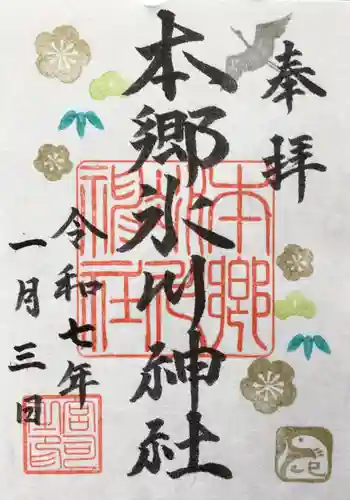 奉拝
本郷氷川神社
令和七年
一月三日
本郷氷川神社